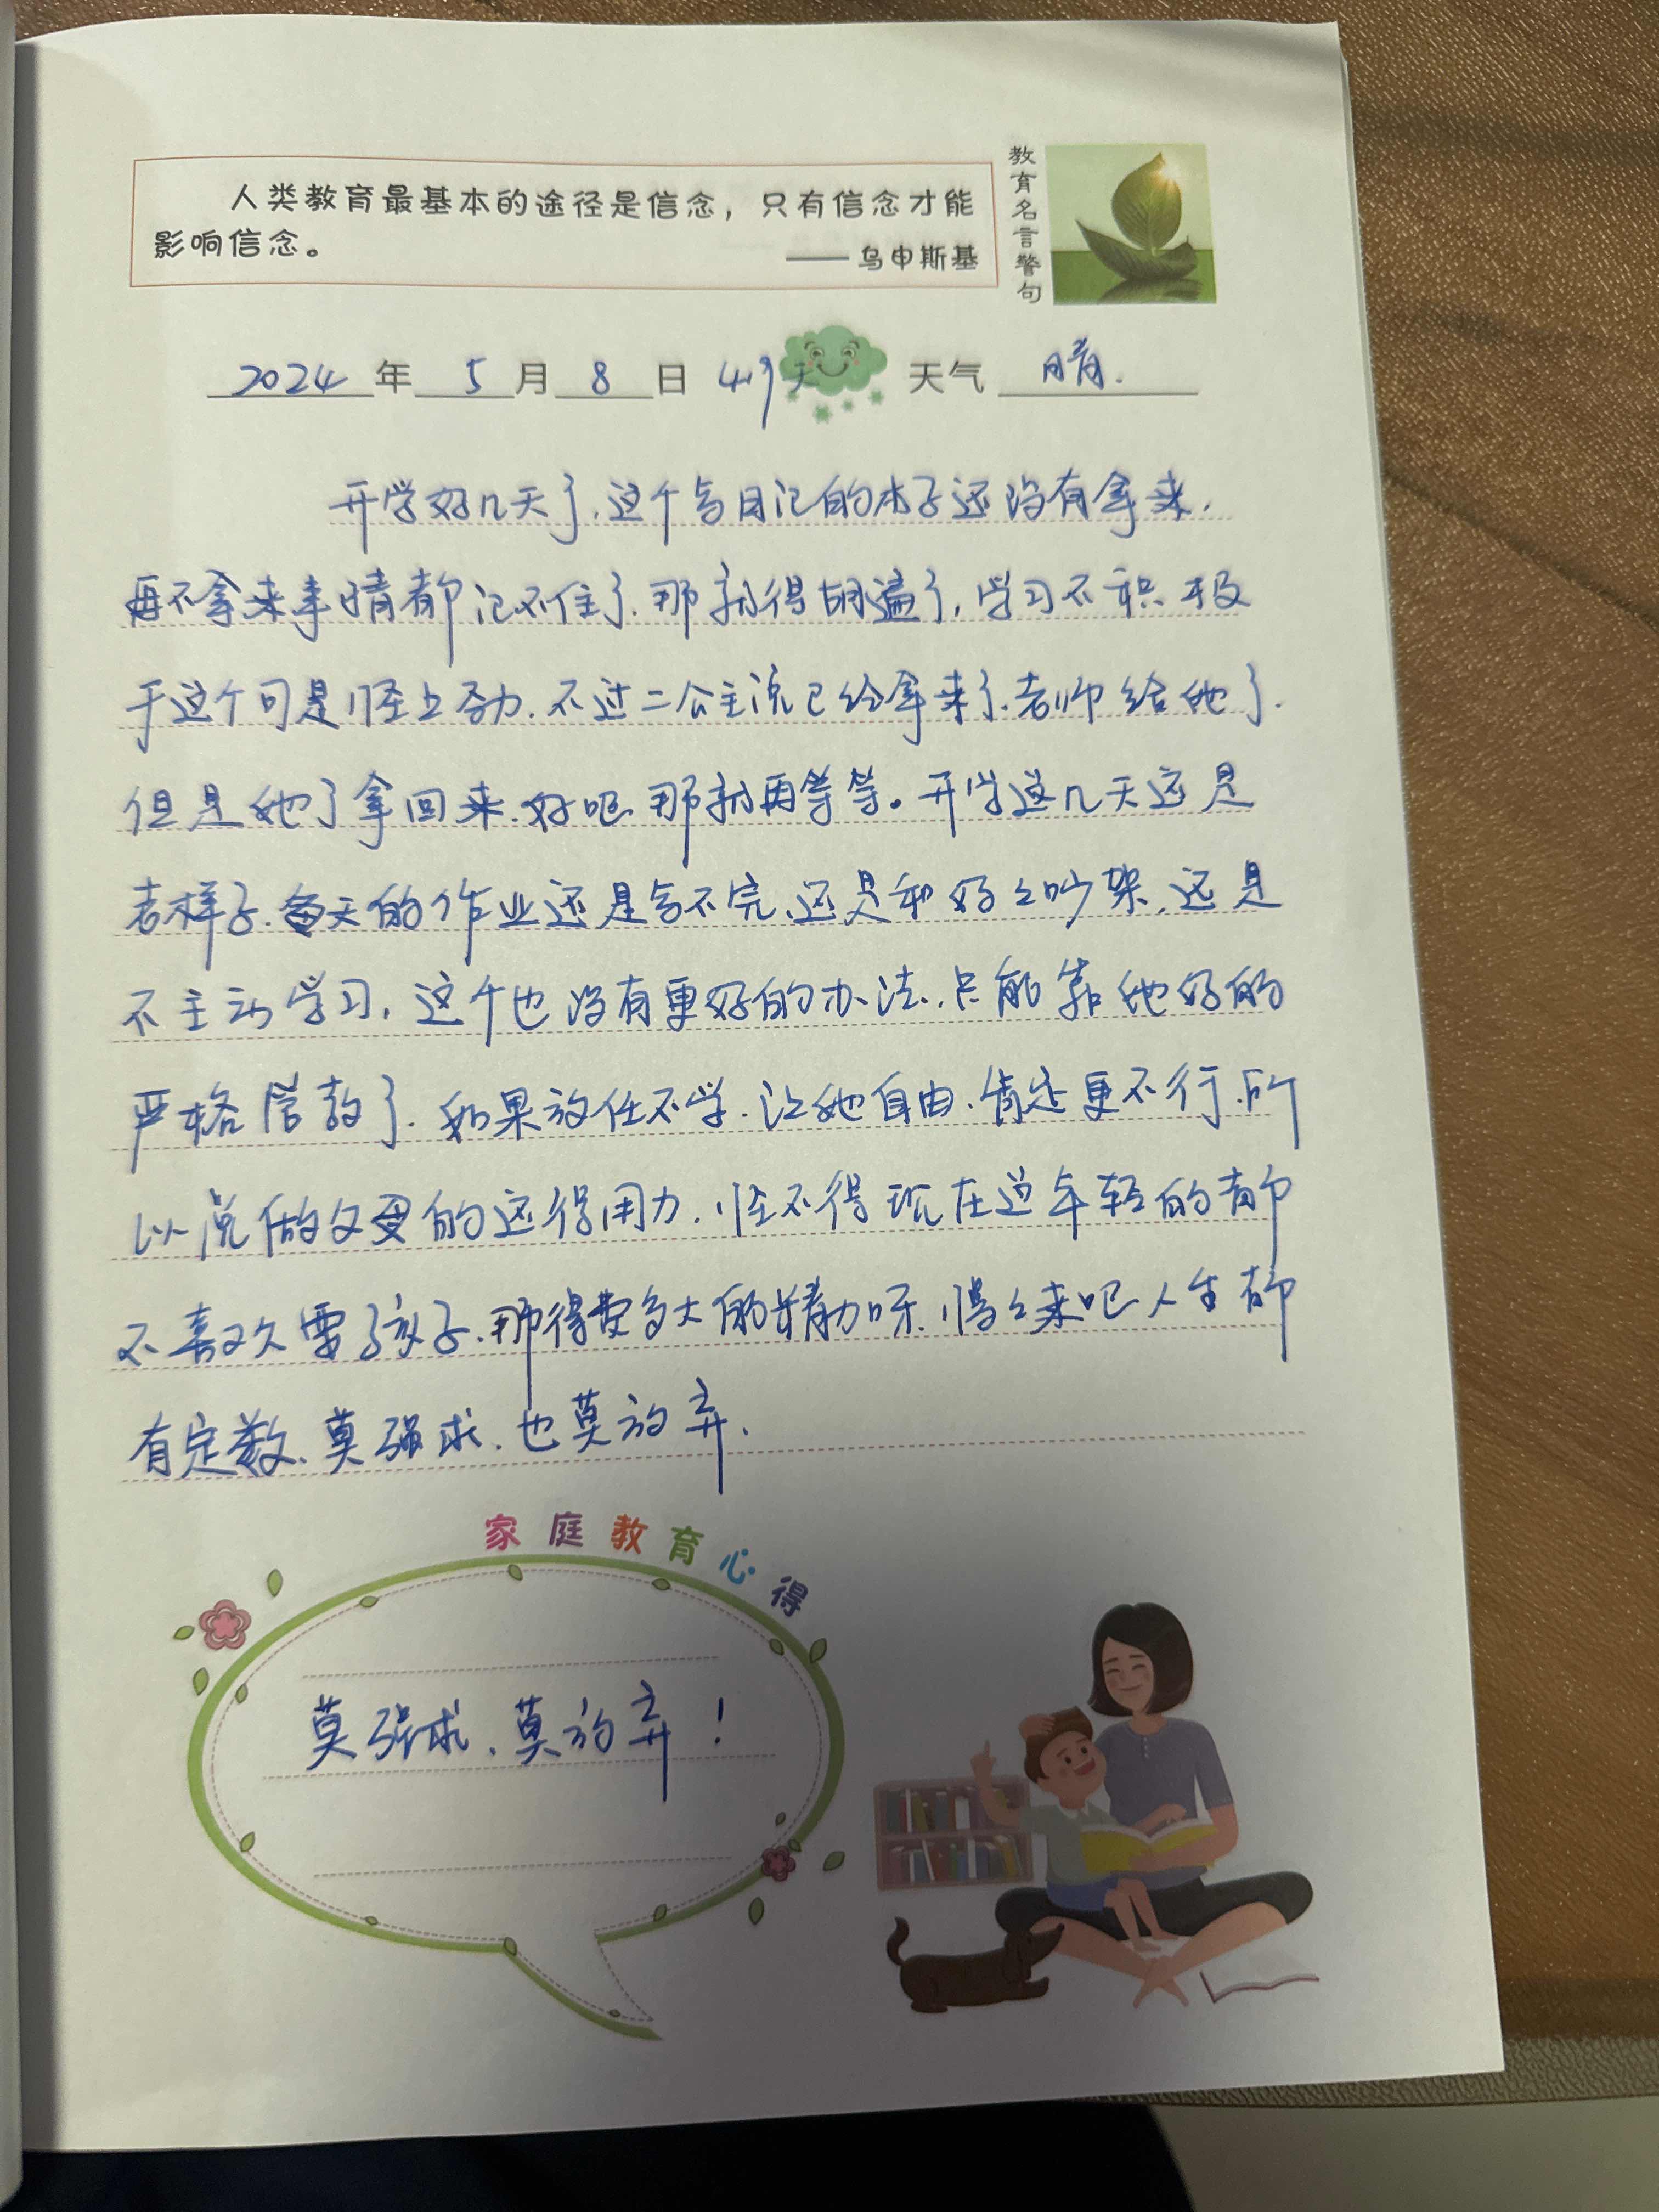 人类教育最基本的途径是信念，只有信念才能
影响信念。
——乌申斯基
教育名言警句
2024年5月8日 419天 天气 晴.
开学好几天了.这个写日记的本子还没有拿来.
再不拿来事情都记不住了.那就得胡编了,学习不积极
于这个可是怪上劲力.不过二公主说已给拿来了.老师给她了.
但是她了拿回来.好吧 那就再等等。开学这几天还是
老样子.每天的作业还是写不完.还是和好好吵架.还是
不主动学习,这个也没有更好的办法.只能靠她妈的
严格管教了.如果放任不学.让她自由.肯定更不行.所
以说做父母的还得用力.怪不得现在这年轻的都
不喜欢要孩子.那得费多大的精力呀.慢慢来吧人生都
有定数.莫强求.也莫放弃.
家庭教育心得
莫强求、莫放弃！